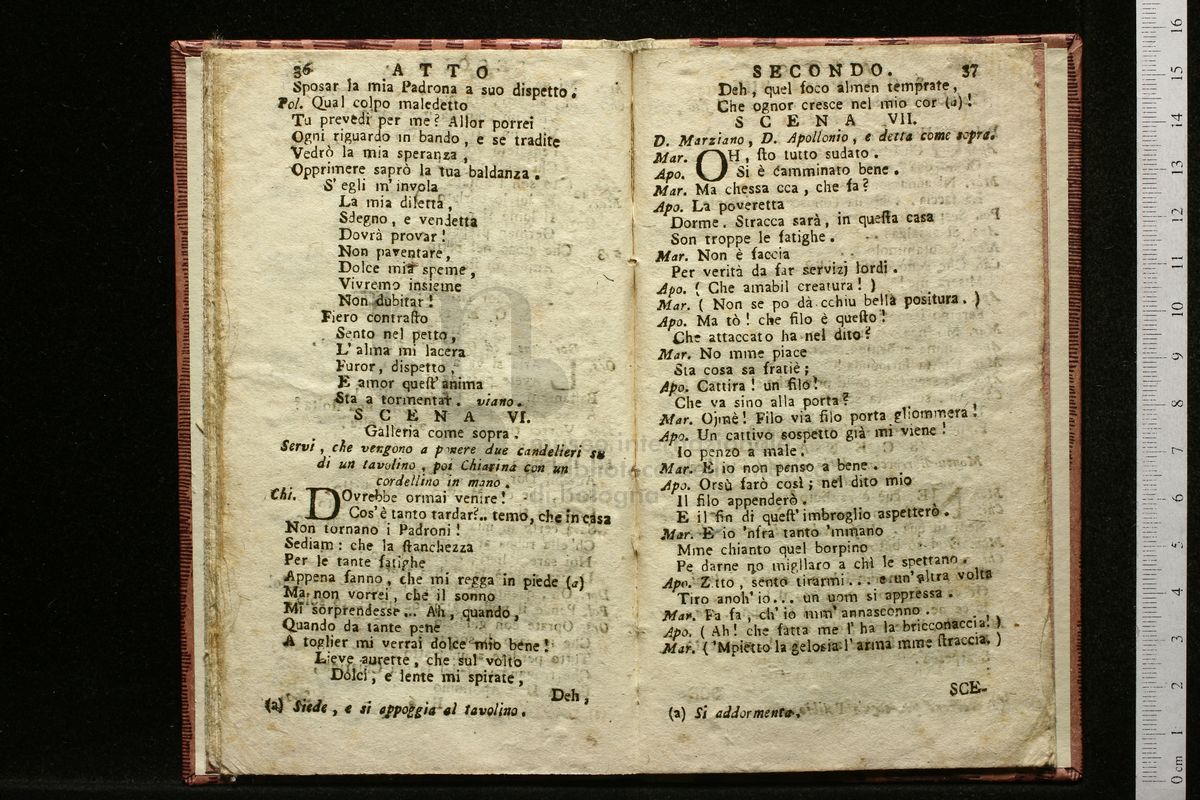 36 ATTO
Sposar la mia Padrona a suo dispetto.
Pol. Qual colpo maledetto
Tu prevedi per me? Allor porrei
Ogni riguardo in bando, e se tradite
Vedrò la mia speranza,
Opprimere saprò la tua baldanza.
S' egli m' invola
La mia diletta,
Sdegno, e vendetta
Dovrà provar!
Non paventare,
Dolce mia speme,
Vivremo insieme
Non dubitar!
Fiero contrasto
Sento nel petto,
L' alma mi lacera
Furor, dispetto,
E amor quest' anima
Sta a tormentar. viano.
SCENA VI.
Galleria come sopra.
Servi, che vengono a ponere due candelieri su
di un tavolino, poi Chiarina con un
cordellino in mano.
Chi. DOvrebbe ormai venire!
Cos' è tanto tardar?.. temo, che in casa
Non tornano i Padroni!
Sediam: che la stanchezza
Per le tante fatighe
Appena fanno, che mi regga in piede (a)
Ma non vorrei, che il sonno
Mi sorprendesse... Ah, quando,
Quando da tante pene
A toglier mi verrai dolce mio bene!
Lieve aurette, che sul volto
Dolci, e lente mi spirate,
Deh,
(a) Siede, e si appoggia al tavolino.
SECONDO. 37
Deh, quel foco almen temprate,
Che ognor cresce nel mio cor (a)!
SCENA VII.
D. Marziano, D. Apollonio, e detta come sopra.
Mar. OH, sto tutto sudato.
Apo. Si è camminato bene.
Mar. Ma chessa cca, che fa?
Apo. La poveretta
Dorme. Stracca sarà, in questa casa
Son troppe le fatighe.
Mar. Non è faccia
Per verità da far servizj lordi.
Apo. ( Che amabil creatura! )
Mar. ( Non se po dà cchiu bella positura. )
Apo. Ma tò! che filo è questo!
Che attaccato ha nel dito?
Mar. No mme piace
Sta cosa sa fratiè;
Apo. Cattira! un filo!
Che va sino alla porta?
Mar. Ojmè! Filo via filo porta gliommera!
Apo. Un cattivo sospetto già mi viene!
Io penzo a male.
Mar. E io non penso a bene.
Apo. Orsù farò così; nel dito mio
Il filo appenderò.
E il fin di quest' imbroglio aspetterò.
Mar. E io 'nfra tanto 'mmano
Mme chianto quel borpino
Pe darne no migliaro a chi le spettano.
Apo. Zitto, sento tirarmi... e un' altra volta
Tiro anoh' io... un uom si appressa.
Mar. Fa fa, ch' io mm' annasconno.
Apo. ( Ah! che fatta me l' ha la bricconaccia! )
Mar. ( 'Mpietto la gelosia l' arma mme straccia. )
SCE-
(a) Si addormenta.